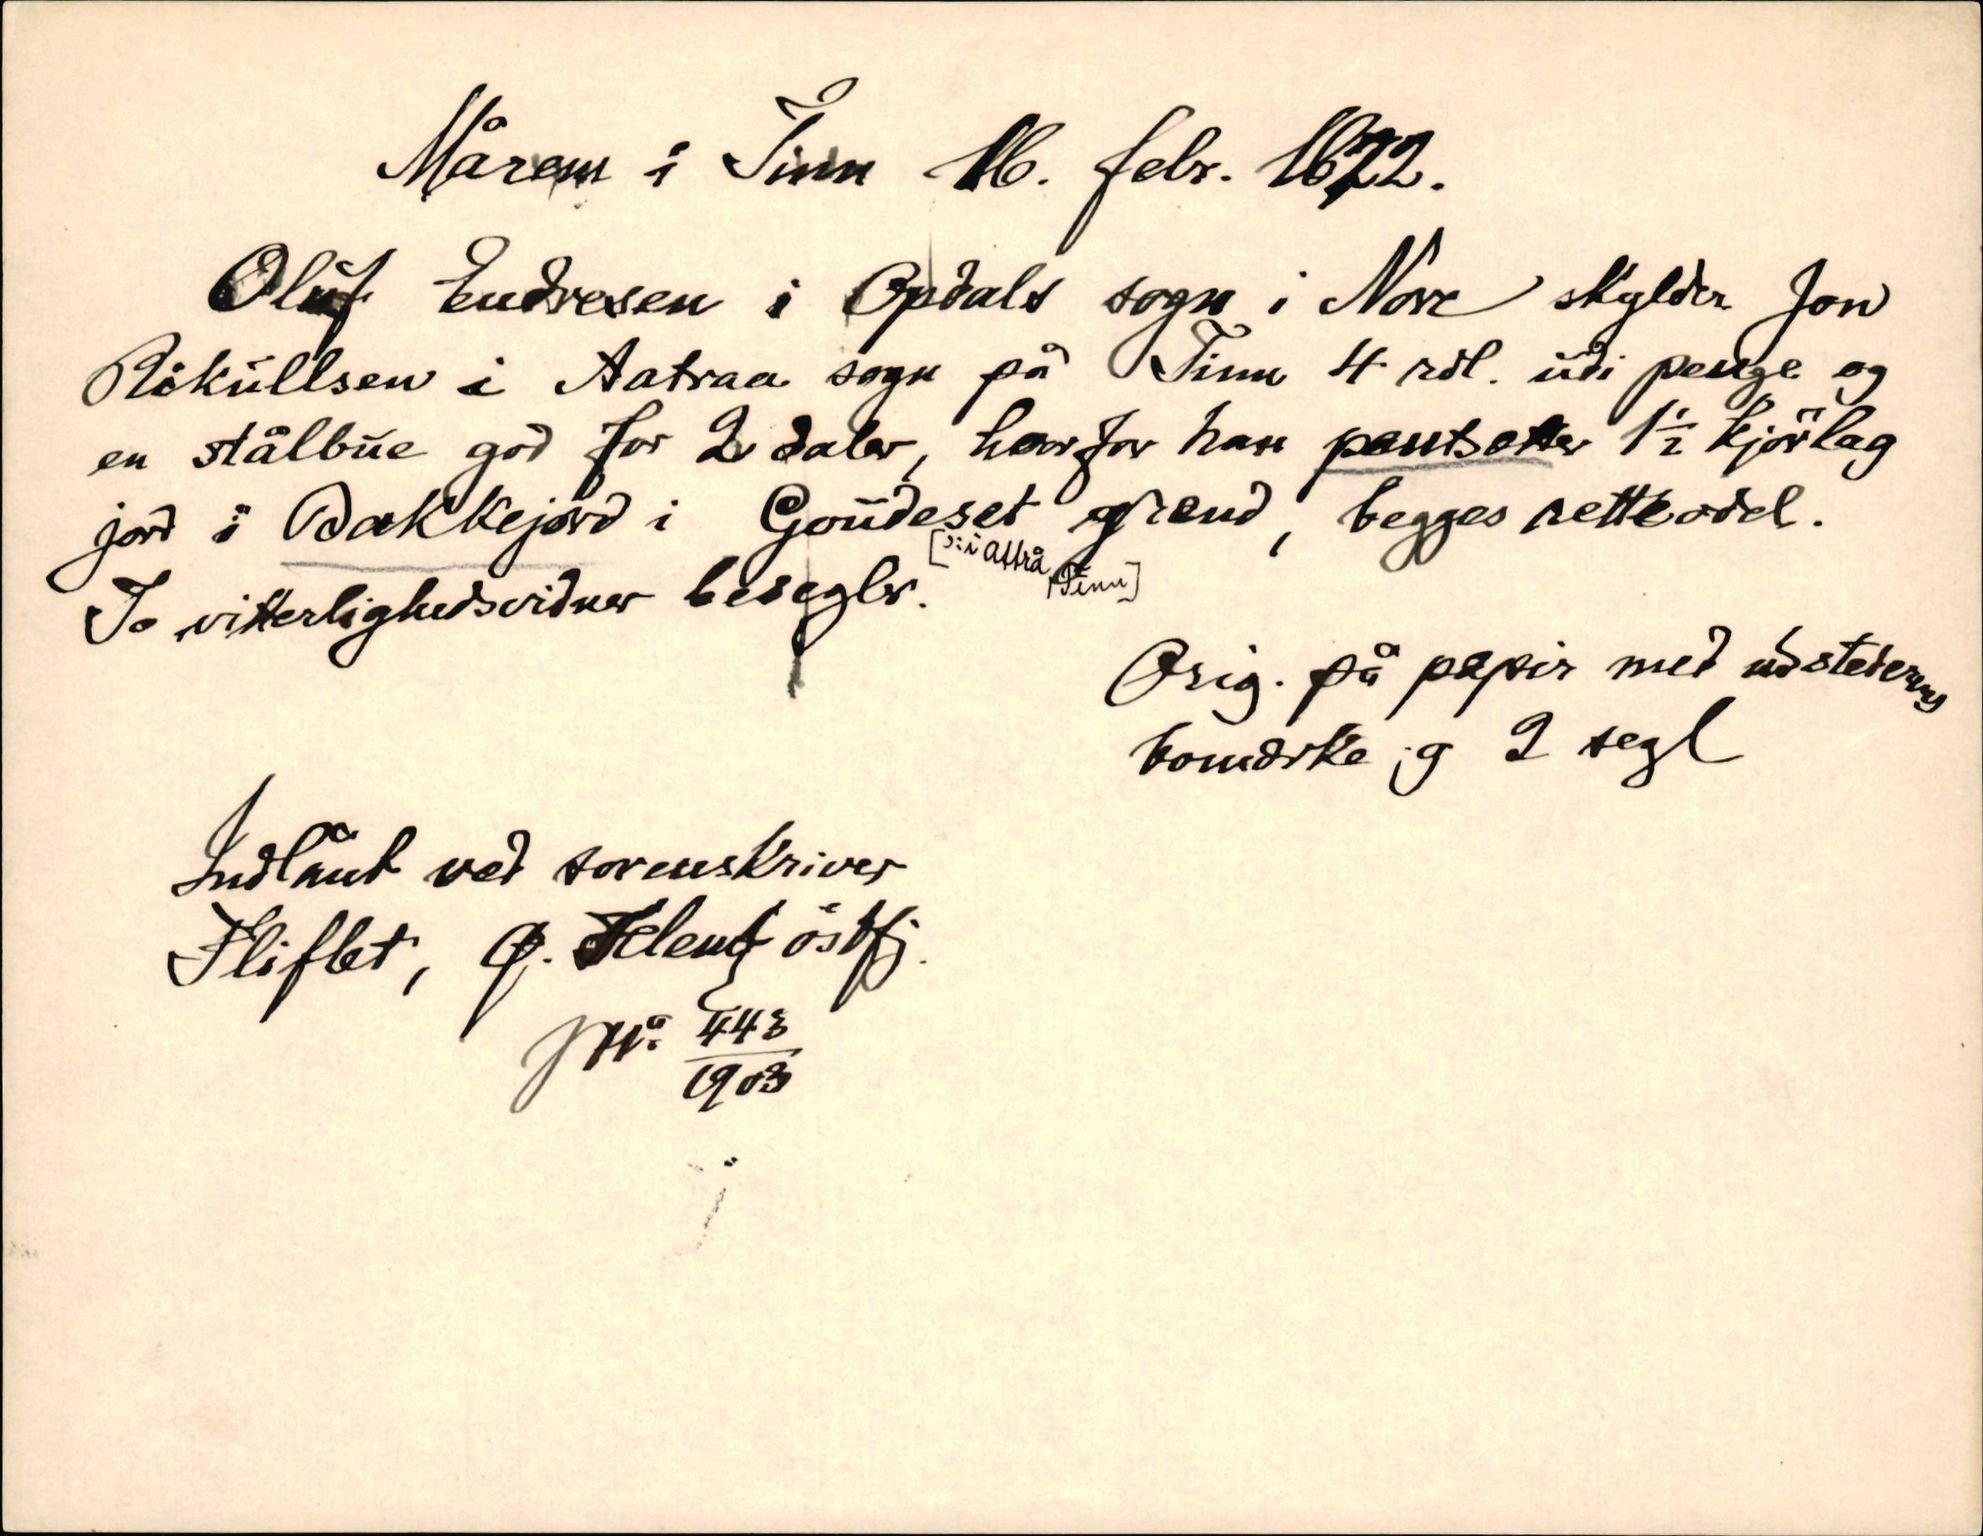 Mårem i Tinn 16. febr. 1622.
Oluf Endresen i Opdals sogn i Nore skylder Jon
Rikullsen i Aatraa sogn på Tinn 4 rdl. udi penge og
en stålbue god for 2 daler, hvorfor han pantsetter 1½ kjørlag
jord i Bakkejord i Goudeset grend, begges rette odel.
[ɔ: i Attrå
Tinn]
To vitterlighedsvidner besegler.
Orig. på papir med udstederens
bomærke og 2 segl
Indlånt ved sorenskriver
Fliflet, ø. Telem. østfj.
Jnº 443
1903